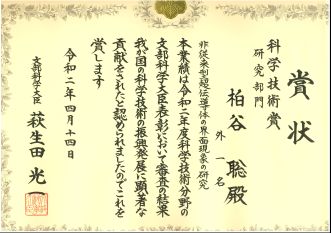 賞状
科学技術賞
研究部門
柏谷 聡殿
外一名
非従来型超伝導体の界面現象の研究
本業績は令和二年度科学技術分野の
文部科学大臣表彰において審査の結果
我が国の科学技術の振興発展に顕著な
貢献をされたと認められましたのでこれを
賞します
令和二年四月十四日
文部科学大臣 萩生田光一